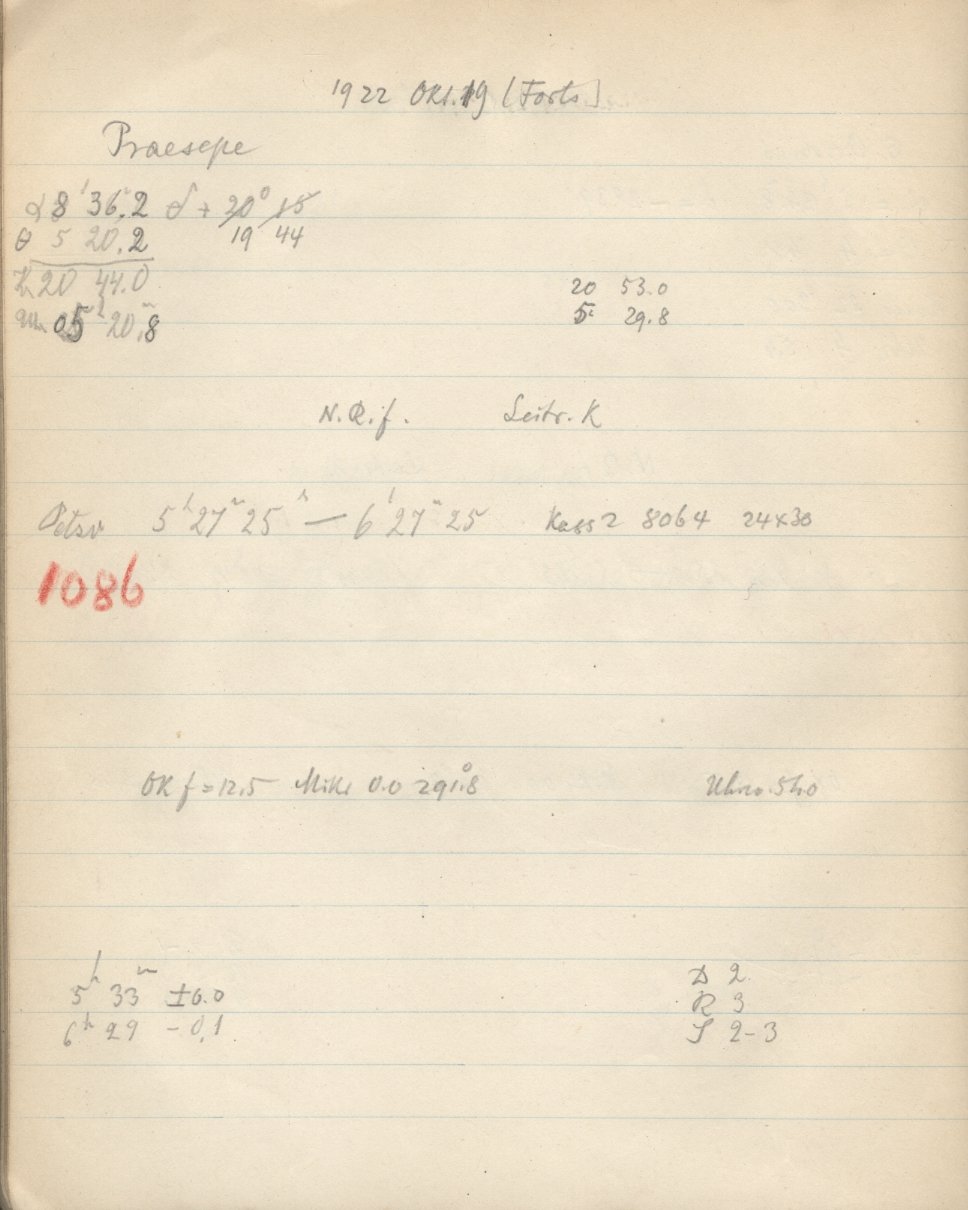 1922 Okt. 19 [Forts]
Praesepe
α 8ʰ 36ᵐ.2 δ + 20° 15
θ 5 20.2 19 44
20 44.0 20 53.0
05ʰ 20ᵐ.8 5 29.8
N.R.f. Leitr. K
5ʰ 27ᵐ 25ˢ — 6ʰ 27ᵐ 25 Kass 2 8064 24x30
1086
OK f = 12.5 Mikr 0.0 291.8°
5ʰ 33ᵐ ±0.0 D 2
6ʰ 29 - 0.1 R 3
S 2-3